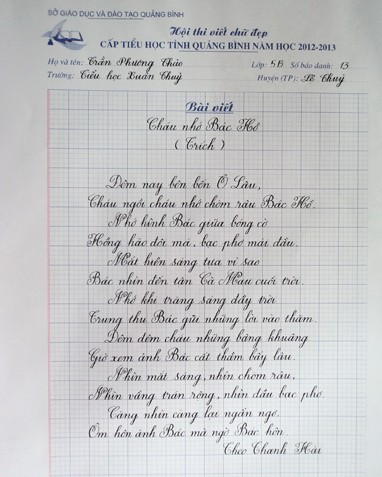 SỞ GIÁO DỤC VÀ ĐÀO TẠO QUẢNG BÌNH
Hội thi viết chữ đẹp
CẤP TIỂU HỌC TỈNH QUẢNG BÌNH NĂM HỌC 2012-2013
Họ và tên: Trần Phương Thảo Lớp: 5B Số báo danh: 13
Trường: Tiểu học Xuân Thuỷ Huyện (TP): Lệ Thuỷ
Bài viết
Cháu nhớ Bác Hồ
(Trích)
Đêm nay bên bến Ô Lâu,
Cháu ngồi cháu nhớ chòm râu Bác Hồ.
Nhớ hình Bác giữa bóng cờ
Hồng hào đôi má, bạc phơ mái đầu.
Mắt hiền sáng tựa vì sao
Bác nhìn đến tận Cà Mau cuối trời.
Nhớ khi trăng sáng đầy trời
Trung thu Bác gửi những lời vào thăm.
Đêm đêm cháu những bâng khuâng
Giở xem ảnh Bác cất thầm bấy lâu.
Nhìn mắt sáng, nhìn chòm râu,
Nhìn vầng trán rộng, nhìn đầu bạc phơ.
Càng nhìn càng lại ngẩn ngơ,
Ôm hôn ảnh Bác mà ngờ Bác hôn.
Theo Thanh Hải